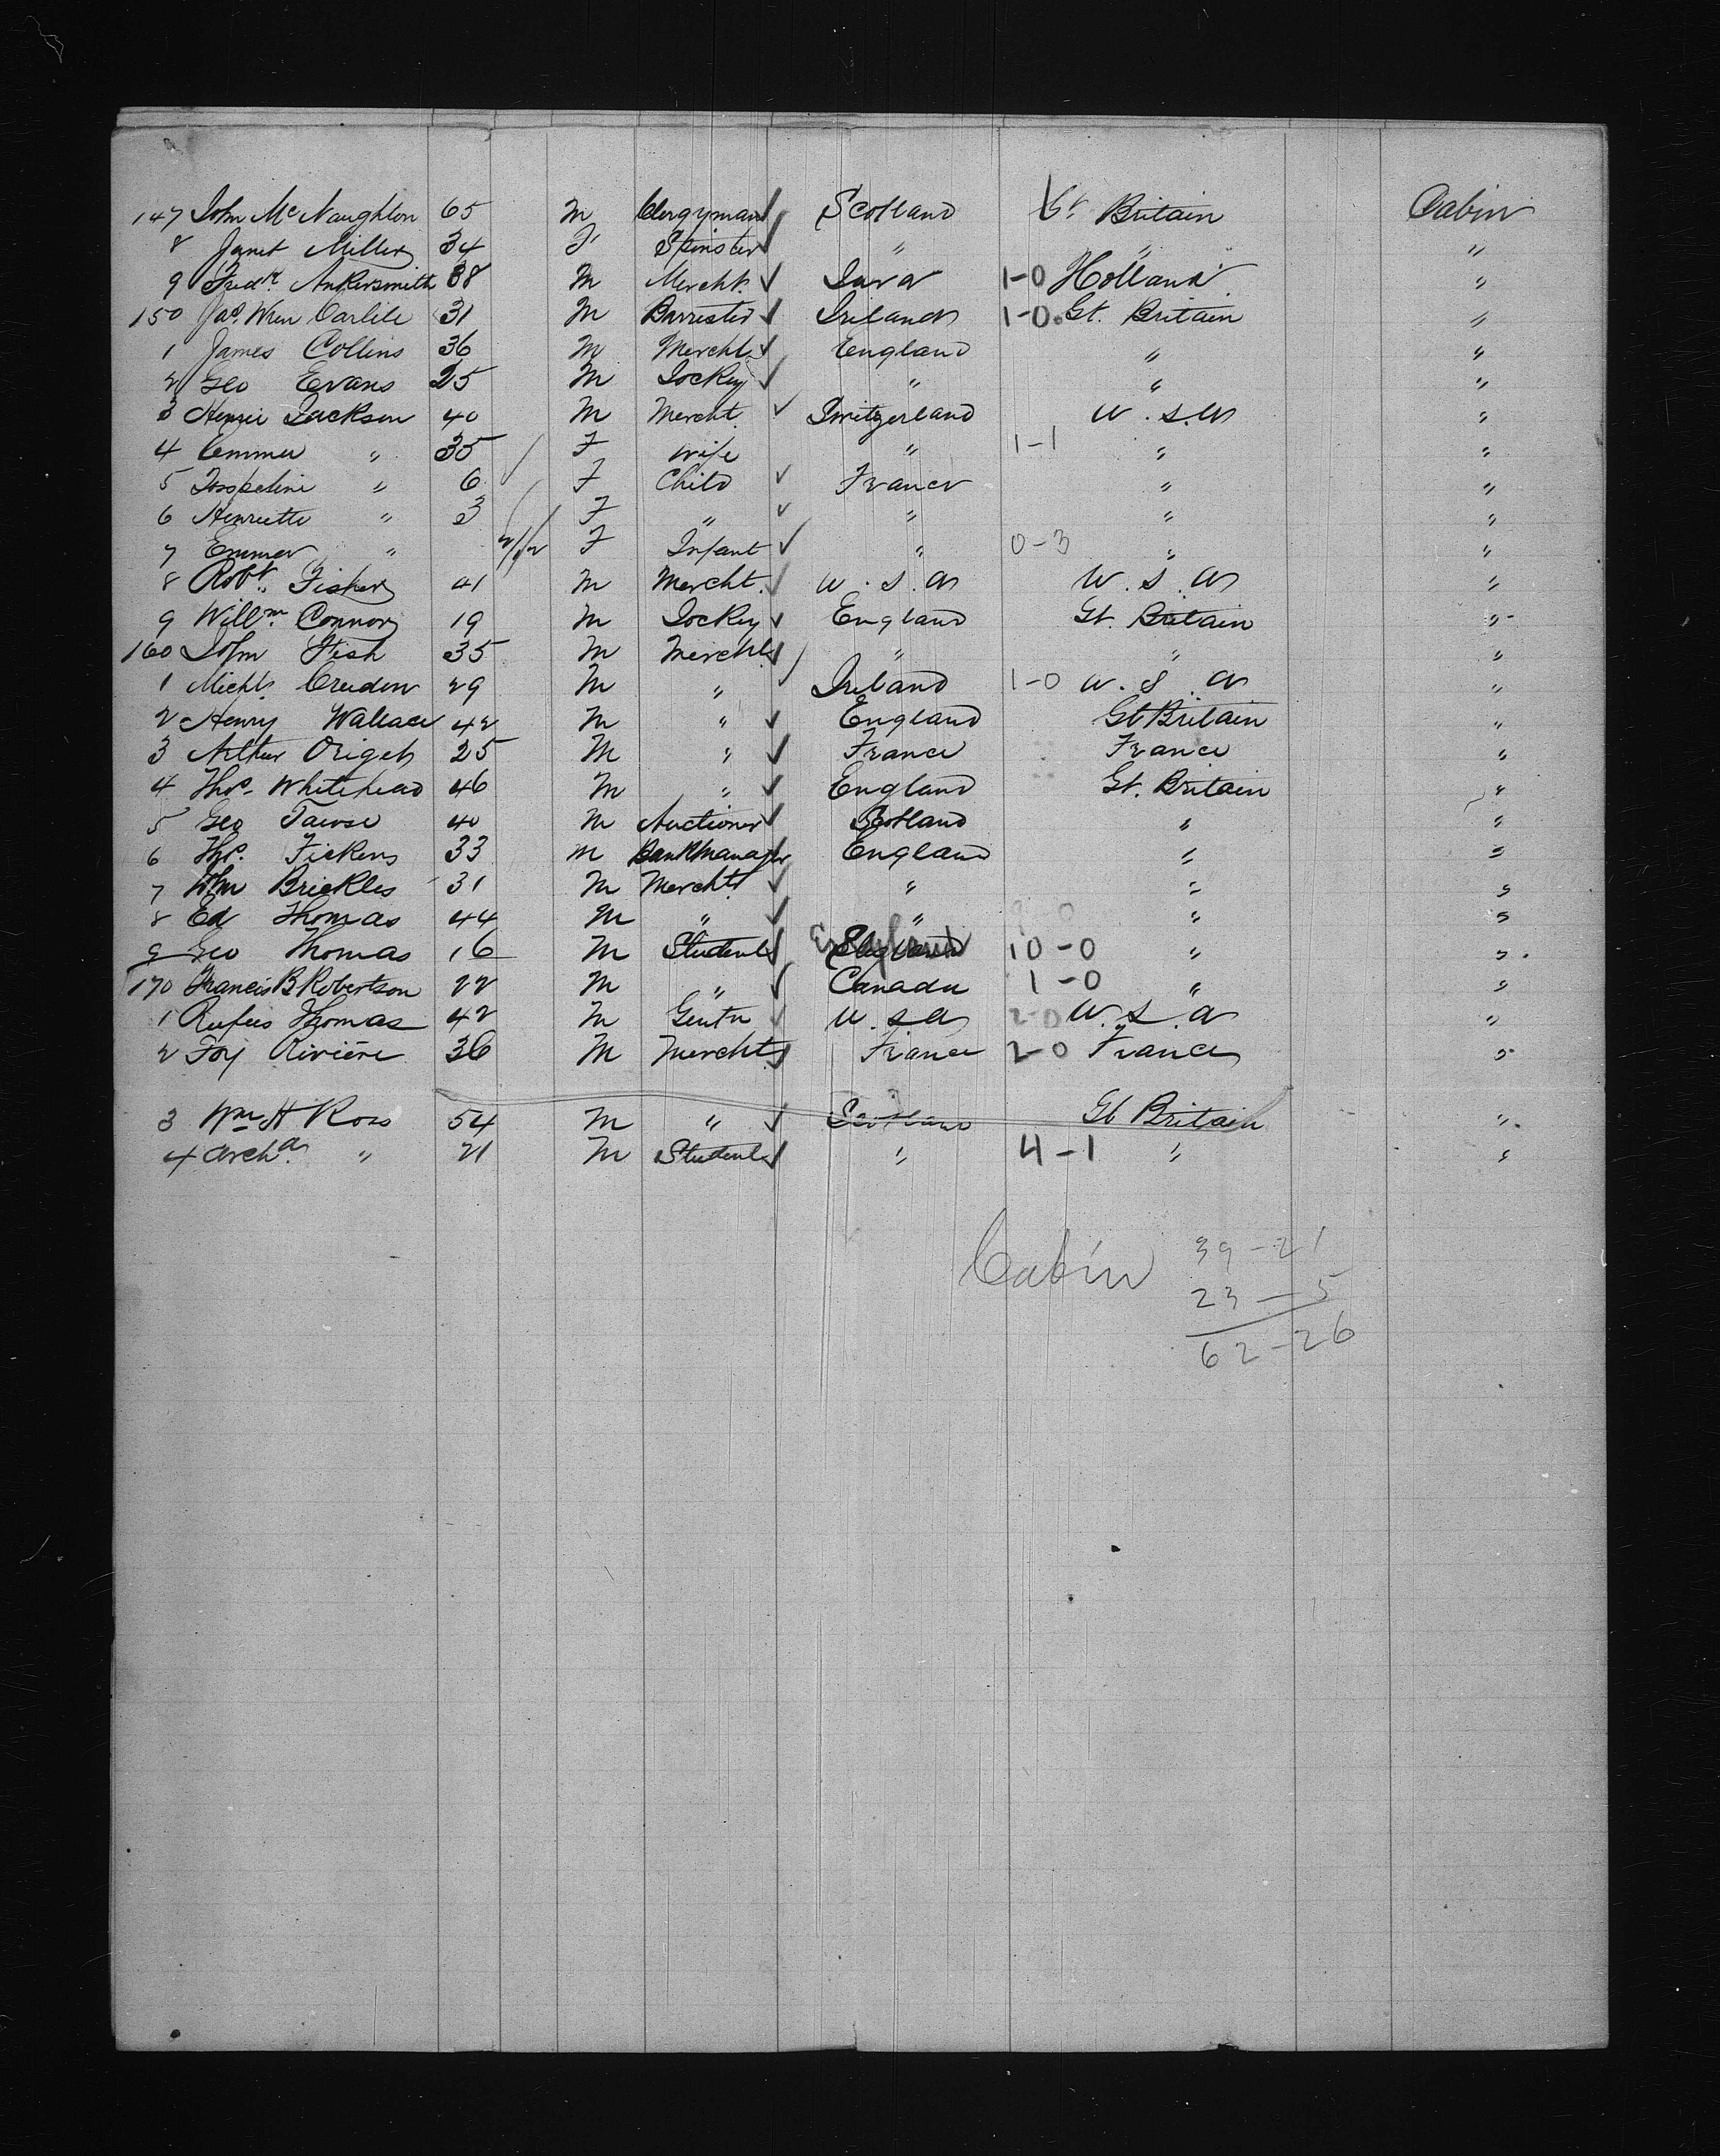 147 John McNaughton 65 M Clergyman Scotland Gt Britain Cabin
8 Janet Miller 34 F Spinster " " "
9 Fredk. Ankersmith 38 M Mercht. Java 1-0 Holland "
150 Jas Wren Carlile 31 M Barrister Ireland 1-0 Gt. Britain "
1 James Collins 36 M Mercht England " "
2 Geo Evans 25 M Jockey " " "
3 Henri Jackson 40 M Mercht. Switzerland U.S.A "
4 Emma " 35 F Wife " 1-1 " "
5 " 6 F Child France " "
6 Henriette " 3 F " " " "
7 Emma " F Infant " 0-3 " "
8 Robt. Fisher 41 M Mercht. U.S.A U.S.A "
9 Willm. Connor 19 M Jockey England Gt. Britain "
160 John Fish 35 M Mercht " " "
1 Michl. Creedon 29 M " Ireland 1-0 U.S.A "
2 Henry Wallace 42 M " England Gt Britain "
3 Arthur 25 M " France France "
4 Thos. Whitehead 46 M " England Gt. Britain "
5 Geo Tawse 40 M Auctioner Scotland " "
6 Thos. Fickens 33 M Bank Manager England " "
7 John Brickles 31 M Mercht " " "
8 Ed Thomas 44 M " " " "
9 Geo Thomas 16 M Student England 10-0 " "
170 Francis B Robertson 22 M " Canada 1-0 " "
1 Rufus Thomas 42 M Gentn U.S.A 2-0 U.S.A "
2 Rivière 36 M Mercht France 2-0 France "
3 Wm H Ross 54 M " Scotland Gt Britain "
4 Archd. " 21 M Student " 4-1 " "
Cabin 39-21
23-5
62-26